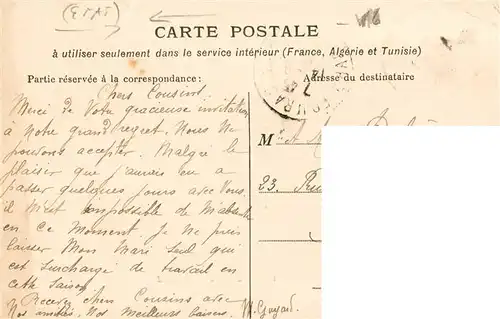 (ETAT)
CARTE POSTALE
à utiliser seulement dans le service intérieur (France, Algérie et Tunisie)
Partie réservée à la correspondance:
Adresse du destinataire
Chers Cousins.
Merci de Votre gracieuse invitation
à Notre grand regret. Nous Ne
pouvons accepter. Malgré le
plaisir que j'aurais eu a
passer quelques jours avec Vous
il m'est impossible de m'absenter
en ce Moment. Je ne puis
laisser Mon Mari seul qui
est surchargé de travail en
cette saison
Recevez chers Cousins avec
Nos amitiés. Nos Meilleurs baisers.
M. Guyard.
Mr et M
23. Rue